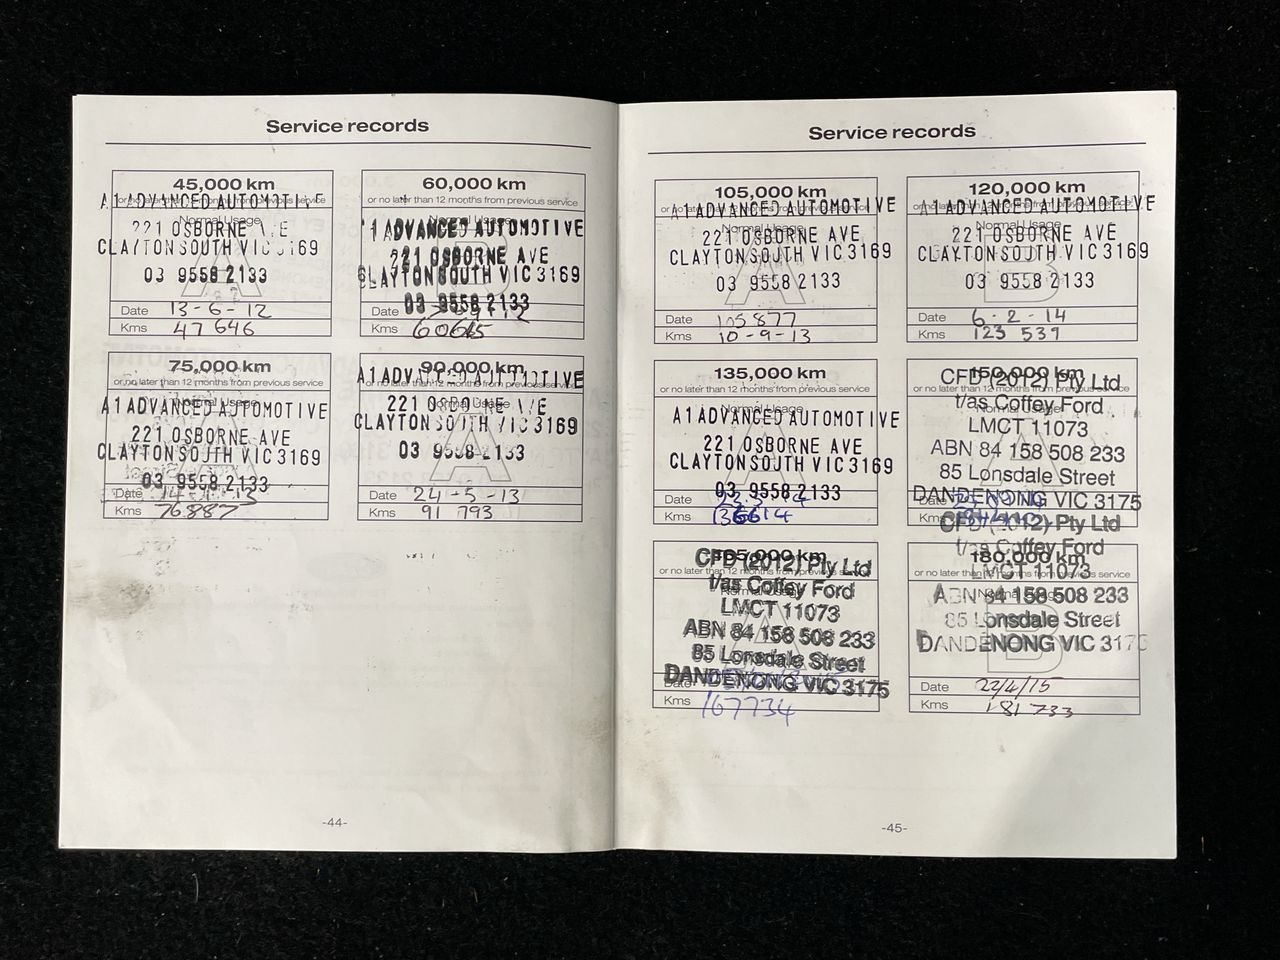 Service records
45,000 km
or no later than 12 months from previous service
Normal Usage
A1 ADVANCED AUTOMOTIVE
221 OSBORNE AVE
CLAYTON SOUTH VIC 3169
03 9558 2133
Date 13-6-12
Kms 47 646
60,000 km
or no later than 12 months from previous service
A1 ADVANCED AUTOMOTIVE
221 OSBORNE AVE
CLAYTON SOUTH VIC 3169
03 9558 2133
Date
Kms
75,000 km
or no later than 12 months from previous service
Normal Usage
A1 ADVANCED AUTOMOTIVE
221 OSBORNE AVE
CLAYTON SOUTH VIC 3169
03 9558 2133
Date
Kms 76887
90,000 km
or no later than 12 months from previous service
Normal Usage
A1 ADVANCED AUTOMOTIVE
221 OSBORNE AVE
CLAYTON SOUTH VIC 3169
03 9558 2133
Date 24-5-13
Kms 91 793
-44-
Service records
105,000 km
or no later than 12 months from previous service
Normal Usage
A1 ADVANCED AUTOMOTIVE
221 OSBORNE AVE
CLAYTON SOUTH VIC 3169
03 9558 2133
Date 105877
Kms 10-9-13
120,000 km
or no later than 12 months from previous service
Normal Usage
A1 ADVANCED AUTOMOTIVE
221 OSBORNE AVE
CLAYTON SOUTH VIC 3169
03 9558 2133
Date 6-2-14
Kms 123 539
135,000 km
or no later than 12 months from previous service
Normal Usage
A1 ADVANCED AUTOMOTIVE
221 OSBORNE AVE
CLAYTON SOUTH VIC 3169
03 9558 2133
Date
Kms 136614
150,000 km
or no later than 12 months from previous service
CFD (2012) Pty Ltd
t/as Coffey Ford
LMCT 11073
ABN 84 158 508 233
85 Lonsdale Street
DANDENONG VIC 3175
Date
Kms
165,000 km
or no later than 12 months from previous service
Normal Usage
CFD (2012) Pty Ltd
t/as Coffey Ford
LMCT 11073
ABN 84 158 508 233
85 Lonsdale Street
DANDENONG VIC 3175
Date
Kms 167734
180,000 km
or no later than 12 months from previous service
Normal Usage
CFD (2012) Pty Ltd
t/as Coffey Ford
LMCT 11073
ABN 84 158 508 233
85 Lonsdale Street
DANDENONG VIC 3175
Date 22/4/15
Kms 181 733
-45-